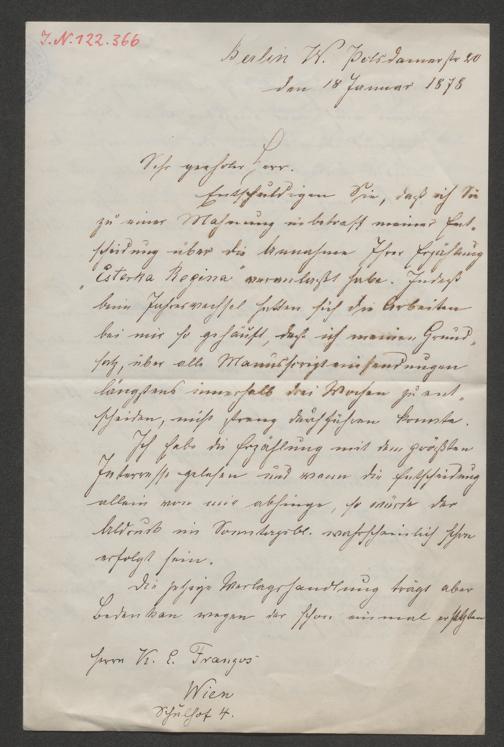 J.N. 122.366
Berlin W. Potsdamerstr 20
den 18 Januar 1878
Sehr geehrter Herr.
Entschuldigen Sie, daß ich Sie
zu einer Mahnung in betreff meiner Ent-
scheidung über die Annahme Ihrer Erzählung
"Esterka Regina" veranlaßt habe. Indeß
beim Jahreswechsel hatten sich die Arbeiten
bei mir so gehäuft, daß ich meinen Grund-
satz, über alle Manuskripteinsendungen
längstens innerhalb drei Wochen zu ent-
scheiden, nicht streng durchführen konnte.
Ich habe die Erzählung mit dem größten
Interesse gelesen und wenn die Entscheidung
allein von mir abhinge, so würde der
Abdruck im Sonntagsbl. wahrscheinlich schon
erfolgt sein.
Die jetzige Verlagshandlung trägt aber
Bedenken wegen der schon einmal erfolgten
Herrn K. E. Franzos
Wien
Schulhof 4.